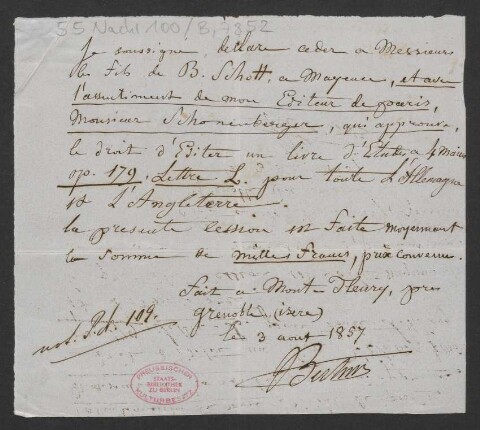 55 Nachl 100/B, 7852
Je soussigné, déclare céder a Messieurs
les fils de B. Schott, a Mayence, et avec
l'assentiment de mon Editeur de paris,
Monsieur Schonenberger, qui approuve,
le droit d'Editer un livre d'Etudes a 4 mains
op. 179. Lettre L. pour toute L'Allemagne
et L'Angleterre.
la presente Cession est faite moyennant
la Somme de milles francs, prix convenu.
fait a Mont-fleury, près
grenoble (isère)
le 3 aout 1857
not. P. d. 109.
HBertini
PREUSSISCHER
STAATS-
BIBLIOTHEK
ZU BERLIN
KULTURBESITZ